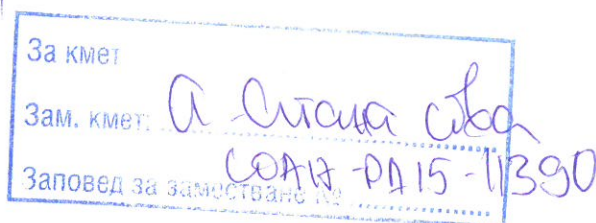 За кмет
Зам. кмет: А Стана
Заповед за заместване № СОА17-РД15-11390